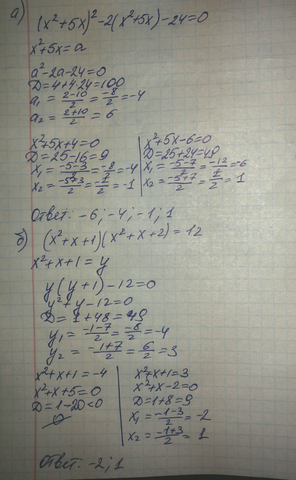 а) (x²+5x)²-2(x²+5x)-24=0
x²+5x=a
a²-2a-24=0
D=4+4·24=100
a₁=(2-10)/2=-8/2=-4
a₂=(2+10)/2=6
x²+5x+4=0
D=25-16=9
x₁=(-5-3)/2=-8/2=-4
x₂=(-5+3)/2=-2/2=-1
x²+5x-6=0
D=25+24=49
x₁=(-5-7)/2=-12/2=-6
x₂=(-5+7)/2=2/2=1
Ответ: -6; -4; -1; 1
б) (x²+x+1)(x²+x+2)=12
x²+x+1=y
y(y+1)-12=0
y²+y-12=0
D=1+48=49
y₁=(-1-7)/2=-8/2=-4
y₂=(-1+7)/2=6/2=3
x²+x+1=-4
x²+x+5=0
D=1-20<0
∅
x²+x+1=3
x²+x-2=0
D=1+8=9
x₁=(-1-3)/2=-2
x₂=(-1+3)/2=1
Ответ: -2; 1